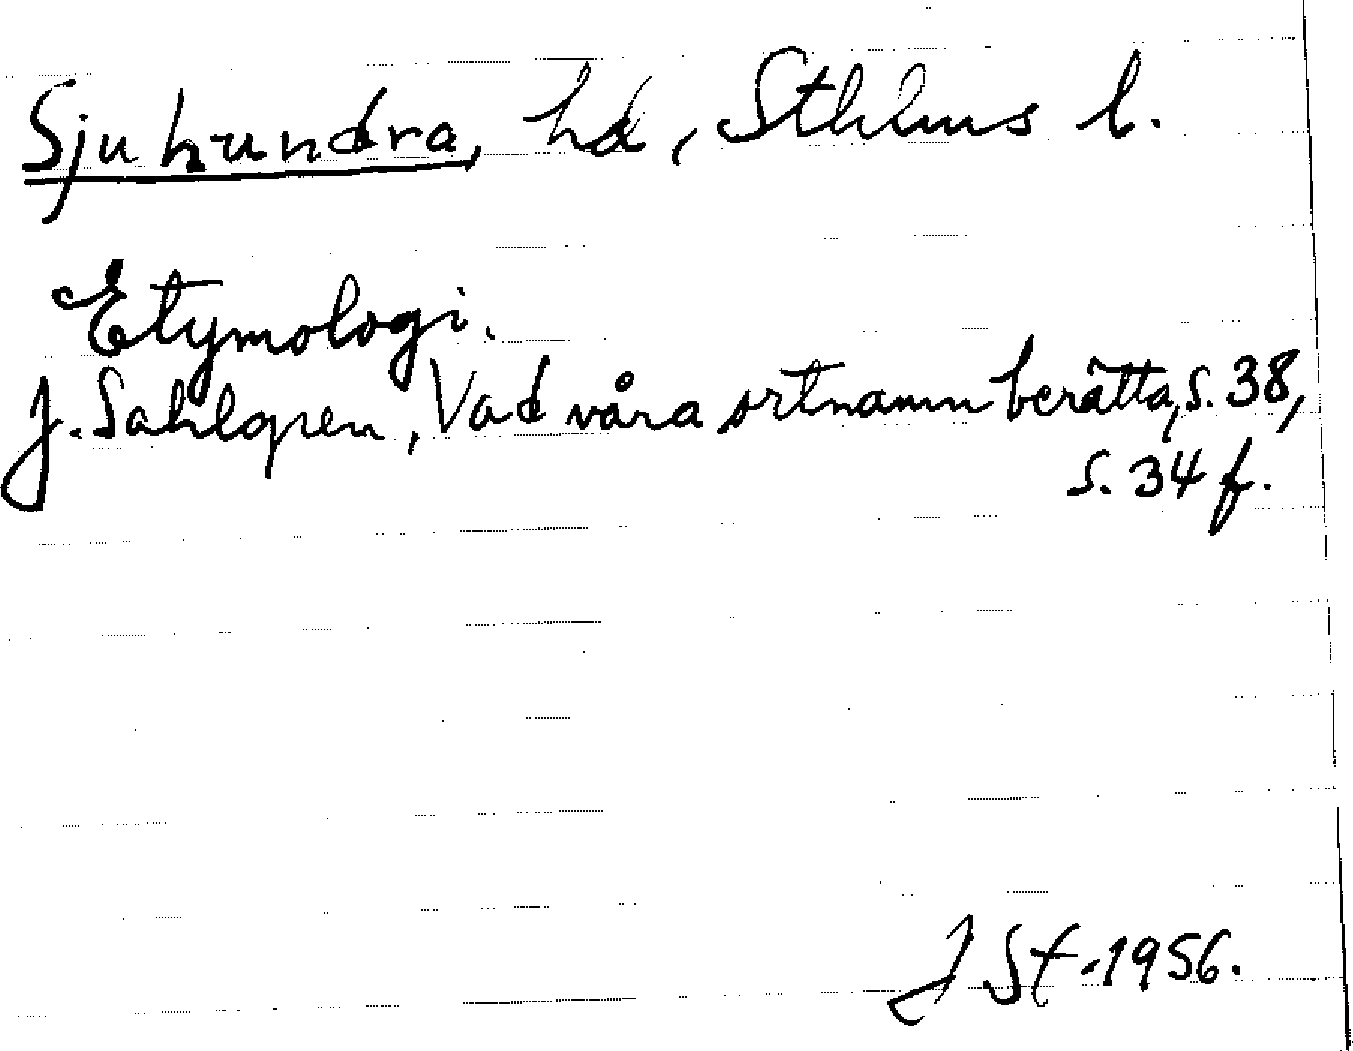 Sjuhundra, hd, Sthlms l.
Etymologi.
J. Sahlgren, Vad våra ortnamn berätta, s. 38,
s. 34 f.
J St. 1956.